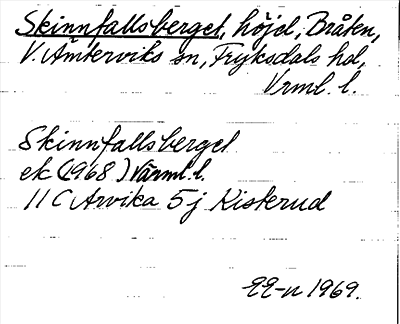 Skinnfallsberget, höjd, Bråten,
V. Ämterviks sn, Fryksdals hd,
Vrml. l.
Skinnfallsberget
ek (1968) Värml. l.
11 C Arvika 5 j Kisterud
1969.